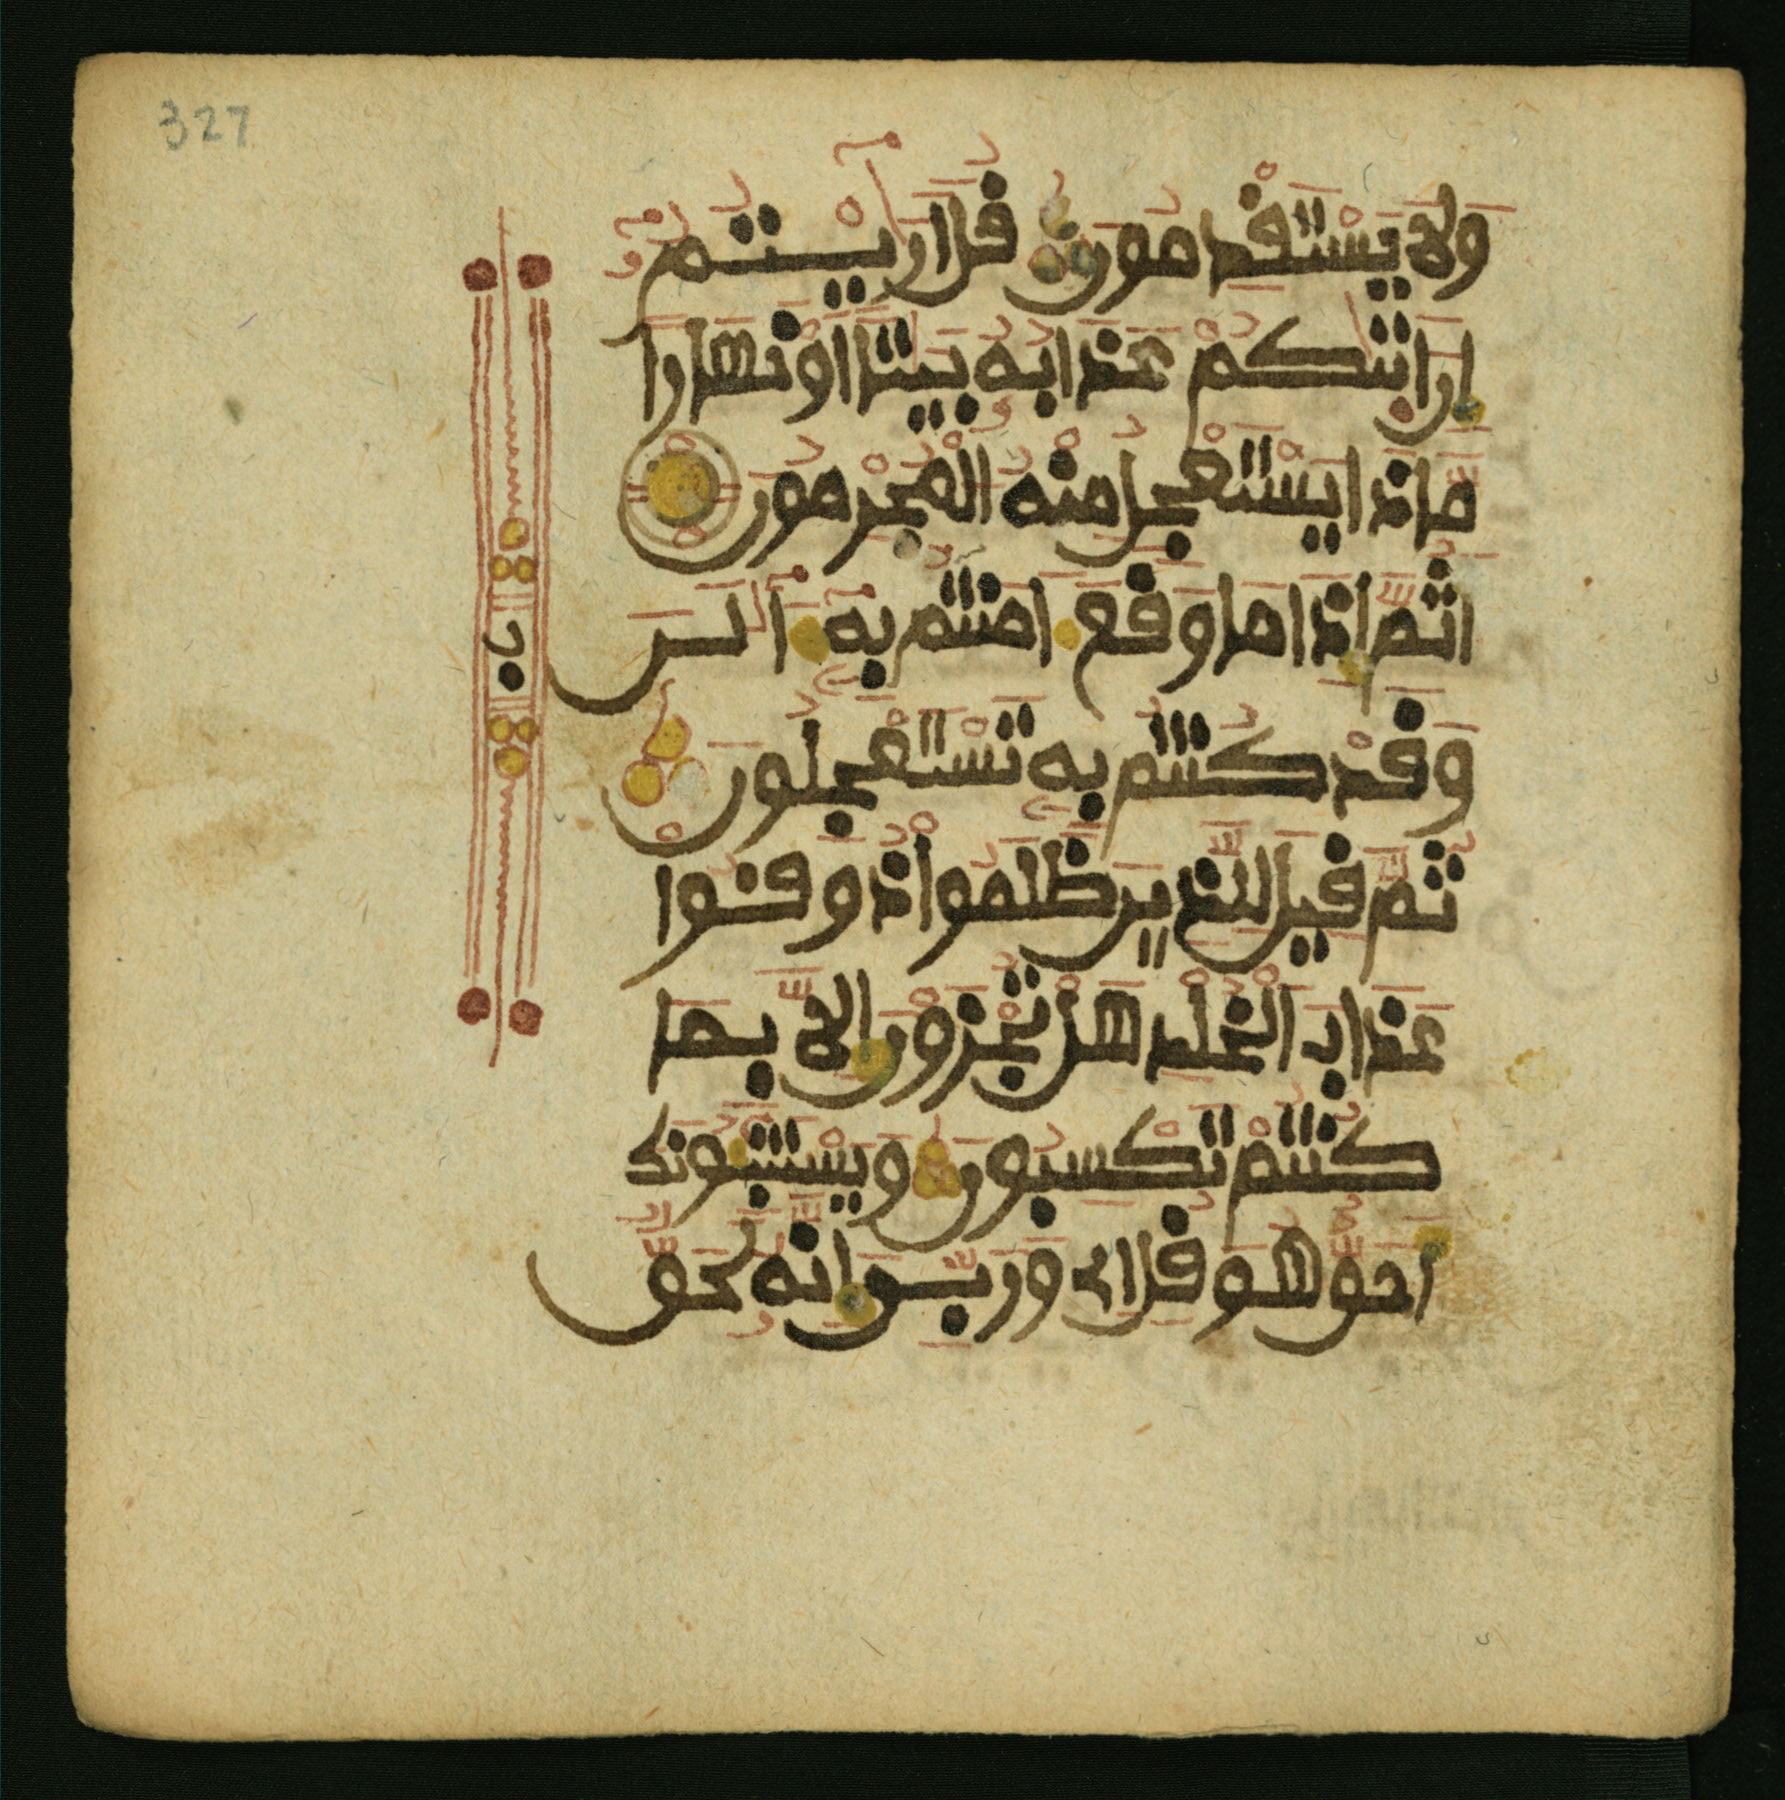 327
ولا يستقدمون قل ارايتم
ان اتيكم عذابه بيتا او نهارا
ماذا يستعجل منه المجرمون
اثم اذا ما وقع امنتم به الن
وقد كنتم به تستعجلون
ثم قيل للذين ظلموا ذوقوا
عذاب الخلد هل تجزون الا بما
كنتم تكسبون ويستنبونك
احق هو قل اى وربى انه لحق